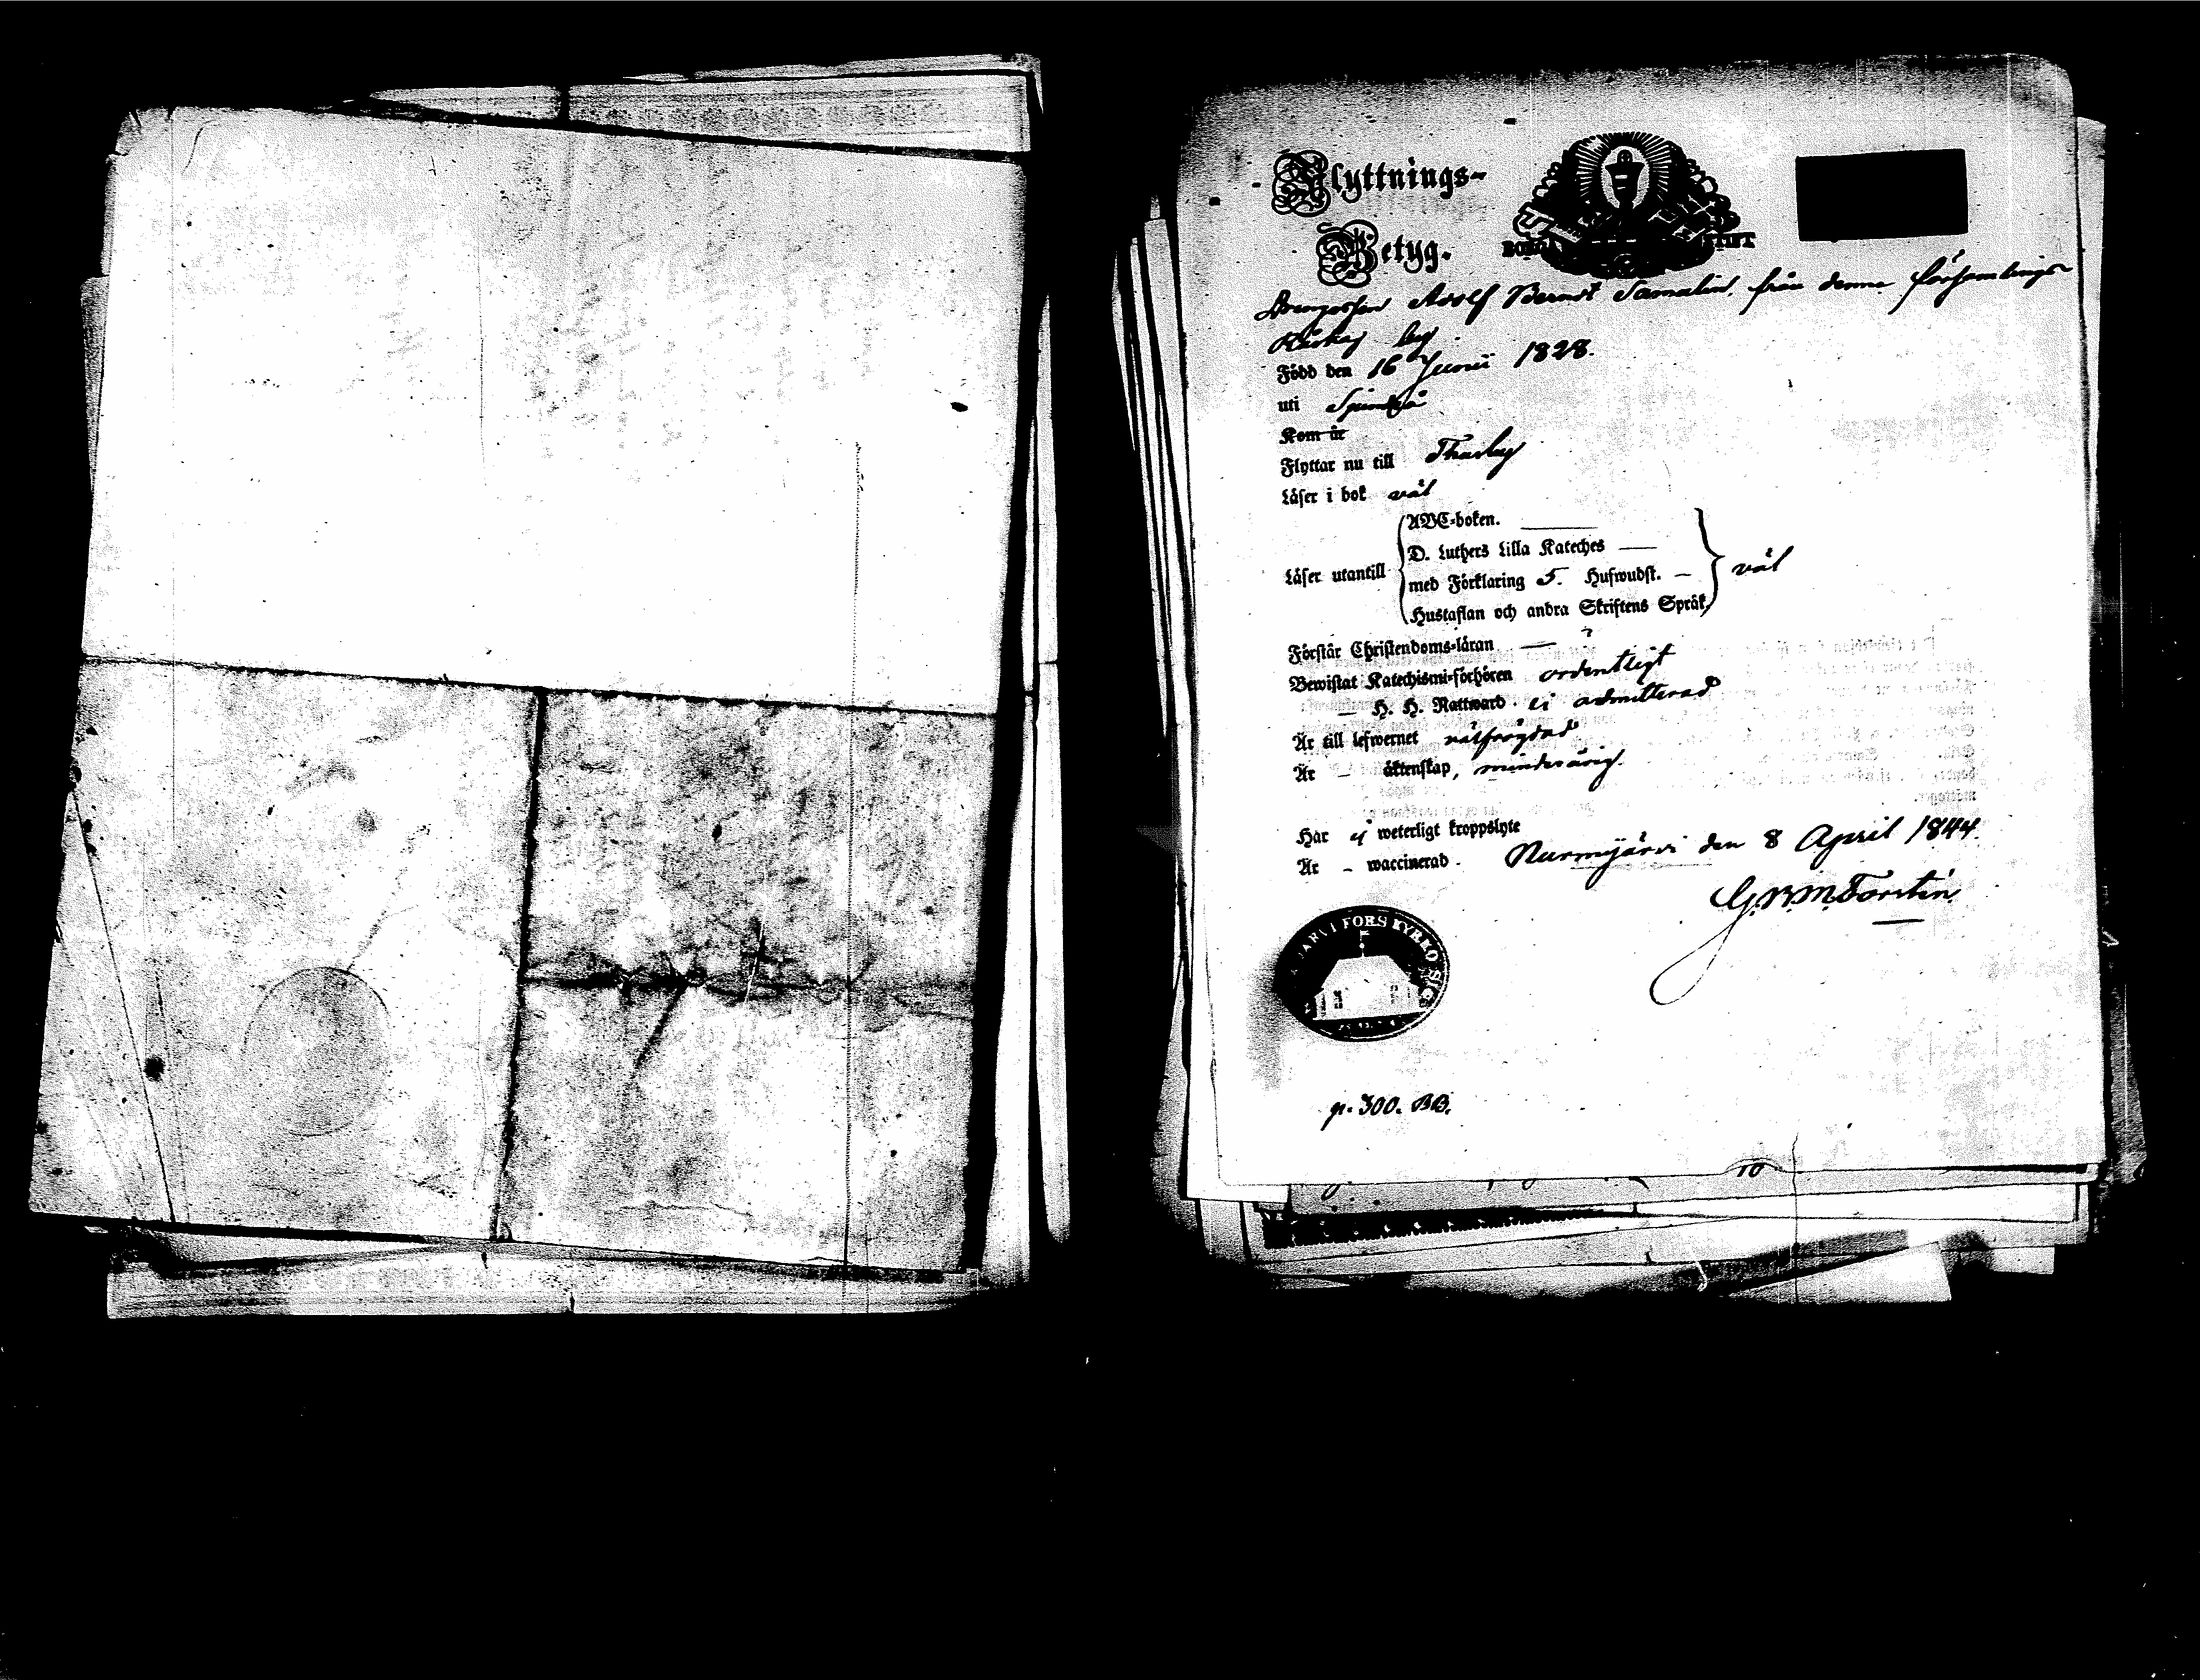 Flyttnings-
Betyg.
BORGÅ STIFT
Adolf Bernst Samalin, från denna församlings
by
Född den 16 Junii 1828.
uti
Kom år
Flyttar nu till Thusby
Läser i bok väl
Läser utantill
ABC-boken. —
D. Luthers Lilla Kateches —
med Förklaring 5. Hufwudst. —
Hustaflan och andra Skriftens Språk,
väl
Förstår Christendoms-läran —
Bewistat Katechismi-förhören ordentligt
— H. H. Nattward ei admitterad
Är till lefwernet välfrägdad
Är – äktenskap, minderårig.
Har ej weterligt kroppslyte
Är – waccinerad.
Nurmijärvi den 8 April 1844.
G.W.M. Forstén
JARVI FORS KYRKO SIG
p. 300. BB.
10